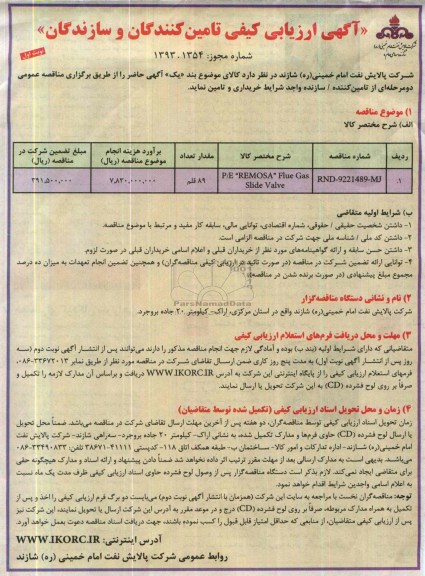 «آگهی ارزیابی کیفی تامین‌کنندگان و سازندگان»
شماره مجوز: ۱۳۹۳.۱۳۵۴
نوبت اول
شرکت پالایش نفت امام خمینی(ره) شازند در نظر دارد کالای موضوع بند «یک» آگهی حاضر را از طریق برگزاری مناقصه عمومی
دومرحله‌ای از تامین‌کننده / سازنده واجد شرایط خریداری و تامین نماید.
۱) موضوع مناقصه
الف) شرح مختصر کالا
ردیف شماره مناقصه شرح مختصر کالا مقدار تعداد برآورد هزینه انجام موضوع مناقصه (ریال) مبلغ تضمین شرکت در مناقصه (ریال)
۱. RND-9221489-MJ P/E "REMOSA" Flue Gas Slide Valve ۸۹ قلم ۷,۸۳۰,۰۰۰,۰۰۰ ۳۹۱,۵۰۰,۰۰۰
ب) شرایط اولیه متقاضی
۱- داشتن شخصیت حقیقی / حقوقی، شماره اقتصادی، توانایی مالی، سابقه کار مفید و مرتبط با موضوع مناقصه.
۲- داشتن کد ملی / شناسه ملی جهت شرکت در مناقصه الزامی است.
۳- داشتن حسن سابقه و ارائه گواهینامه‌های مورد نظر از خریداران قبلی و اعلام اسامی خریداران قبلی در صورت لزوم.
۴- توانایی ارائه تضمین شرکت در مناقصه (در صورت تائید در ارزیابی کیفی مناقصه‌گران) و همچنین تضمین انجام تعهدات به میزان ده درصد
مجموع مبلغ پیشنهادی (در صورت برنده شدن در مناقصه).
ParsNamadData
۲) نام و نشانی دستگاه مناقصه‌گزار
شرکت پالایش نفت امام خمینی(ره) شازند واقع در استان مرکزی، اراک- کیلومتر ۲۰ جاده بروجرد.
۳) مهلت و محل دریافت فرم‌های استعلام ارزیابی کیفی
متقاضیانی که دارای شرایط اولیه (بند ب) بوده و آمادگی لازم جهت انجام مناقصه مذکور را دارند می‌توانند پس از انتشار آگهی نوبت دوم (سه
روز پس از انتشار آگهی نوبت اول) به مدت پنج روز کاری ضمن ارسال تقاضای شرکت در مناقصه مورد نظر از طریق نمابر ۳۳۶۷۲۰۱۳-۰۸۶،
فرمهای استعلام ارزیابی کیفی را از پایگاه اینترنتی این شرکت به آدرس WWW.IKORC.IR دریافت و براساس آن مدارک لازمه را تکمیل و
صرفاً بر روی لوح فشرده (CD) به این شرکت تحویل یا ارسال نمایند.
۴) زمان و محل تحویل اسناد ارزیابی کیفی (تکمیل شده توسط متقاضیان)
زمان تحویل اسناد ارزیابی کیفی توسط مناقصه‌گران، دو هفته پس از آخرین مهلت ارسال تقاضای شرکت در مناقصه می‌باشد ضمناً محل تحویل
یا ارسال لوح فشرده (CD) حاوی فرم‌ها و مدارک تکمیل شده، به نشانی اراک- کیلومتر ۲۰ جاده بروجرد- سه‌راهی شازند- شرکت پالایش نفت
امام خمینی(ره) شازند- اداره تدارکات و امور کالا- ساختمان ب- طبقه همکف اتاق ۱۱۸- کدپستی ۳۸۶۷۱۴۱۱۱۱ تلفن: ۳۳۴۹۰۸۳۳-۰۸۶
می‌باشد. بدیهی است به مدارک ارسالی بعد از مهلت مقرر ترتیب اثر داده نخواهد شد ضمناً دادن پیشنهاد و ارائه اسناد و مدارک هیچگونه حقی
برای متقاضی ایجاد نمی‌کند. لازم بذکر است دستگاه مناقصه‌گزار پس از وصول لوح فشرده حاوی اسناد ارزیابی کیفی ظرف مدت یک ماه نسبت
به اعلام اسامی واجدین شرایط اقدام خواهد نمود.
توجه: مناقصه‌گران نخست با مراجعه به سایت این شرکت (همزمان با انتشار آگهی نوبت دوم) می‌بایست دو برگ فرم ارزیابی کیفی را اخذ و پس از
تکمیل به همراه مدارک مربوطه، صرفاً بر روی لوح فشرده (CD) درج و در موعد مقرر به آدرس این شرکت ارسال یا تحویل نمایند، این شرکت نیز
پس از ارزیابی کیفی متقاضیان، از منابعی که حداقل امتیاز قابل قبول را کسب نموده باشند، جهت دریافت اسناد مناقصه دعوت بعمل خواهد آورد.
آدرس اینترنتی: WWW.IKORC.IR
روابط عمومی شرکت پالایش نفت امام خمینی (ره) شازند